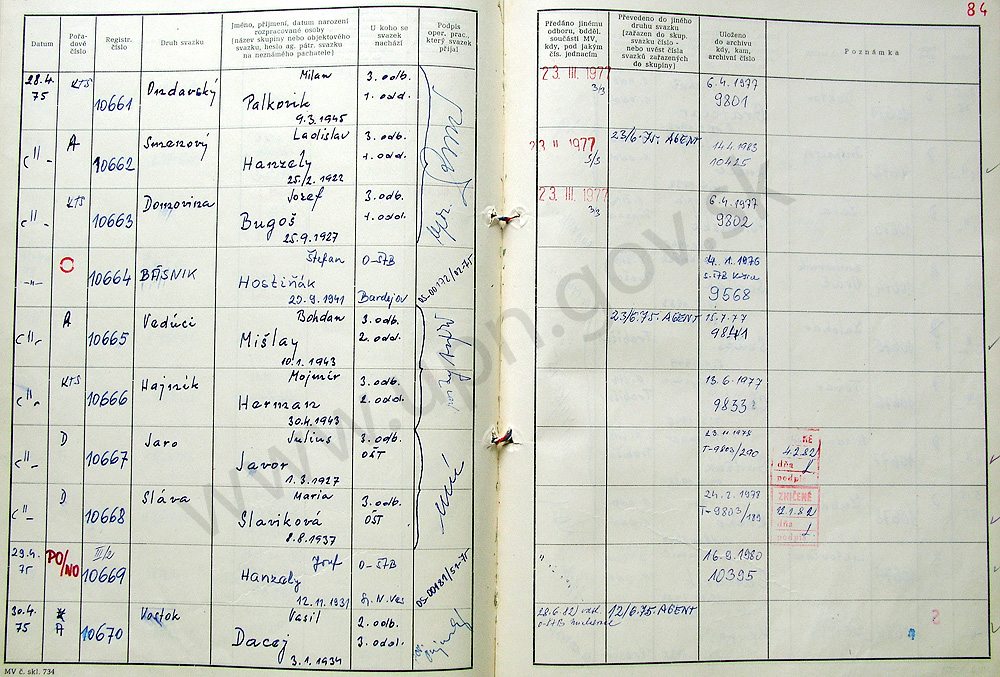 84
Datum
Pořadové číslo
Registr. číslo
Druh svazku
Jméno, příjmení, datum narození
rozpracované osoby
(název skupiny nebo objektového
svazku, heslo ag. pátr. svazku
na neznámého pachatele)
U koho se
svazek
nachází
Podpis
oper. prac.,
který svazek
přijal
Předáno jinému
odboru, odděl.
součásti MV,
kdy, pod jakým
čís. jednacím
Převedeno do jiného
druhu svazku
(zařazen do skup.
svazku číslo -
nebo uvést čísla
svazků zařazených
do skupiny)
Uloženo
do archivu
kdy, kam,
archivní číslo
Poznámka
28.4. 75 KTS 10661 Ondavský Milan 3. odb.
Palkovik 1. odd.
9.3.1945
23. III. 1977 6.4.1977
3/3 9801
A 10662 Smenový Ladislav 3. odb.
Hanzely 1. odd.
25/2. 1922
1977 23/6.75. AGENT 14.4.1983
5/5 10425
KTS 10663 Domovina Jozef 3. odb.
Bugoš 1. odd.
25.9.1927
23. III. 1977 6.4.1977
3/3 9802
O 10664 BÁSNIK Štefan O-ŠTB
Hostiňák
29.9.1941 Bardejov
1. 1976
9568
A 10665 Vedúci Bohdan 3. odb.
Mišlay 2. odd.
10.1.1943
23/6.75. AGENT 15.7.77
9841
KTS 10666 Hajník Mojmír 3. odb.
Herman 2. odd.
30.4.1943
13.6.1977
9833
D 10667 Jaro Július 3. odb.
Javor OŠT
1.3.1927
T-9803/290
KE
4.2.82
dňa
podpis
D 10668 Sláva Maria 3. odb.
Slaviková OŠT
8.8.1937
24.2.1978
T-9803/189
ZNIČENÉ
12.1.82
dňa
podpis
29.4. 75 PO/NO III/2 10669 Jozef O-ŠTB
Hanzely
12.11.1931 Sp. N. Ves
16.9.1980
10395
30.4. 75 A 10670 Vostok Vasil 2. odb.
Dacej 3. odd.
3.1.1934
28.6.82 12/6.75 AGENT
MV č. skl. 734
www.upn.gov.sk